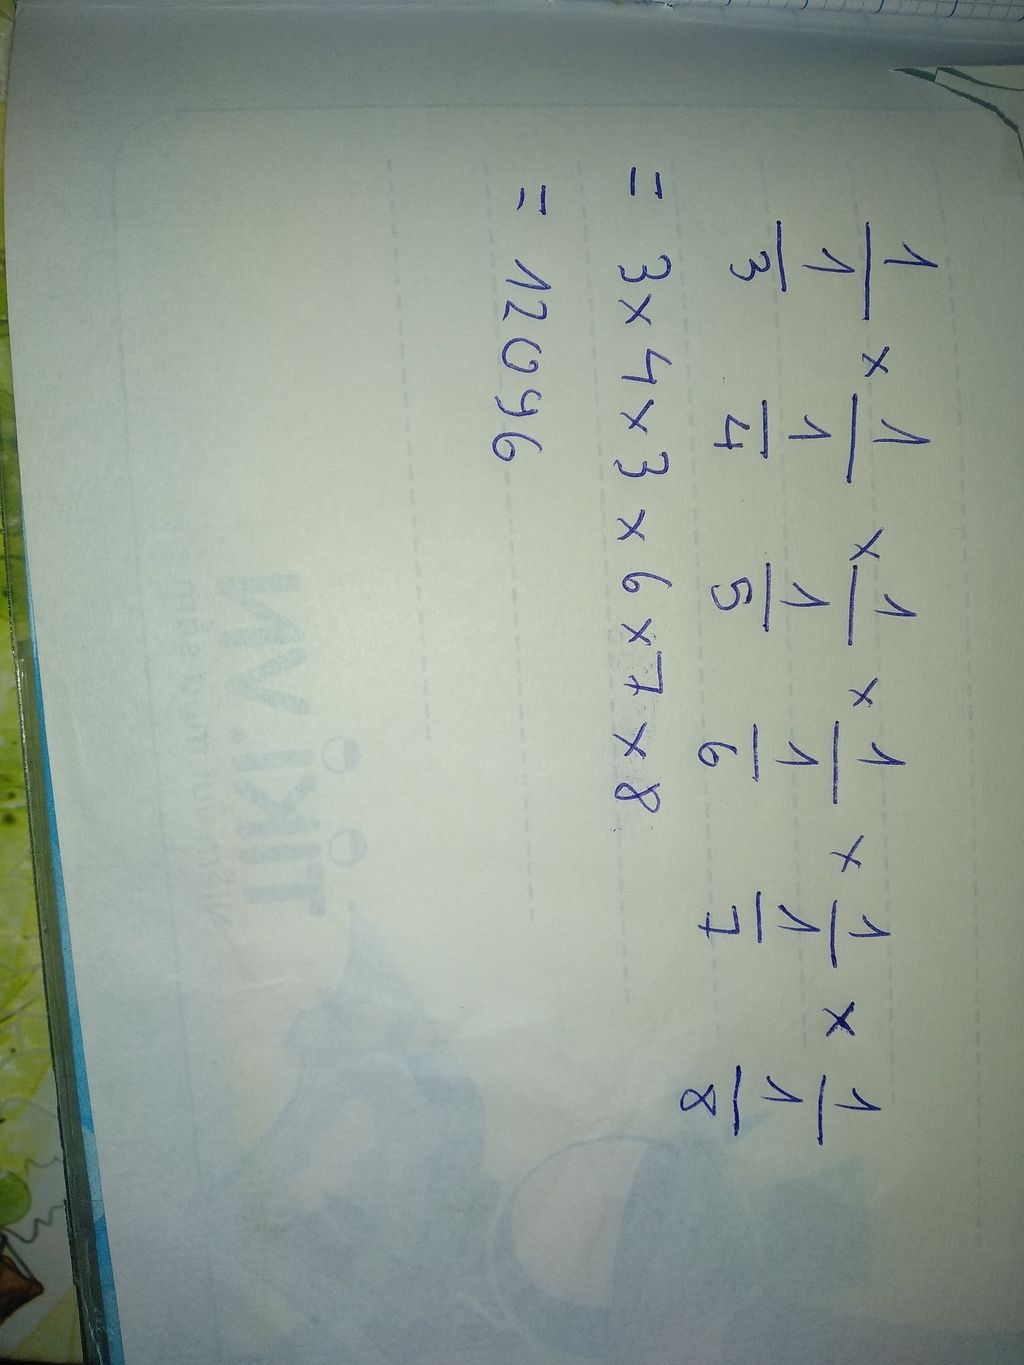 1/(1/3) × 1/(1/4) × 1/(1/5) × 1/(1/6) × 1/(1/7) × 1/(1/8)
= 3 × 4 × 3 × 6 × 7 × 8
= 12096
TIKI.VN